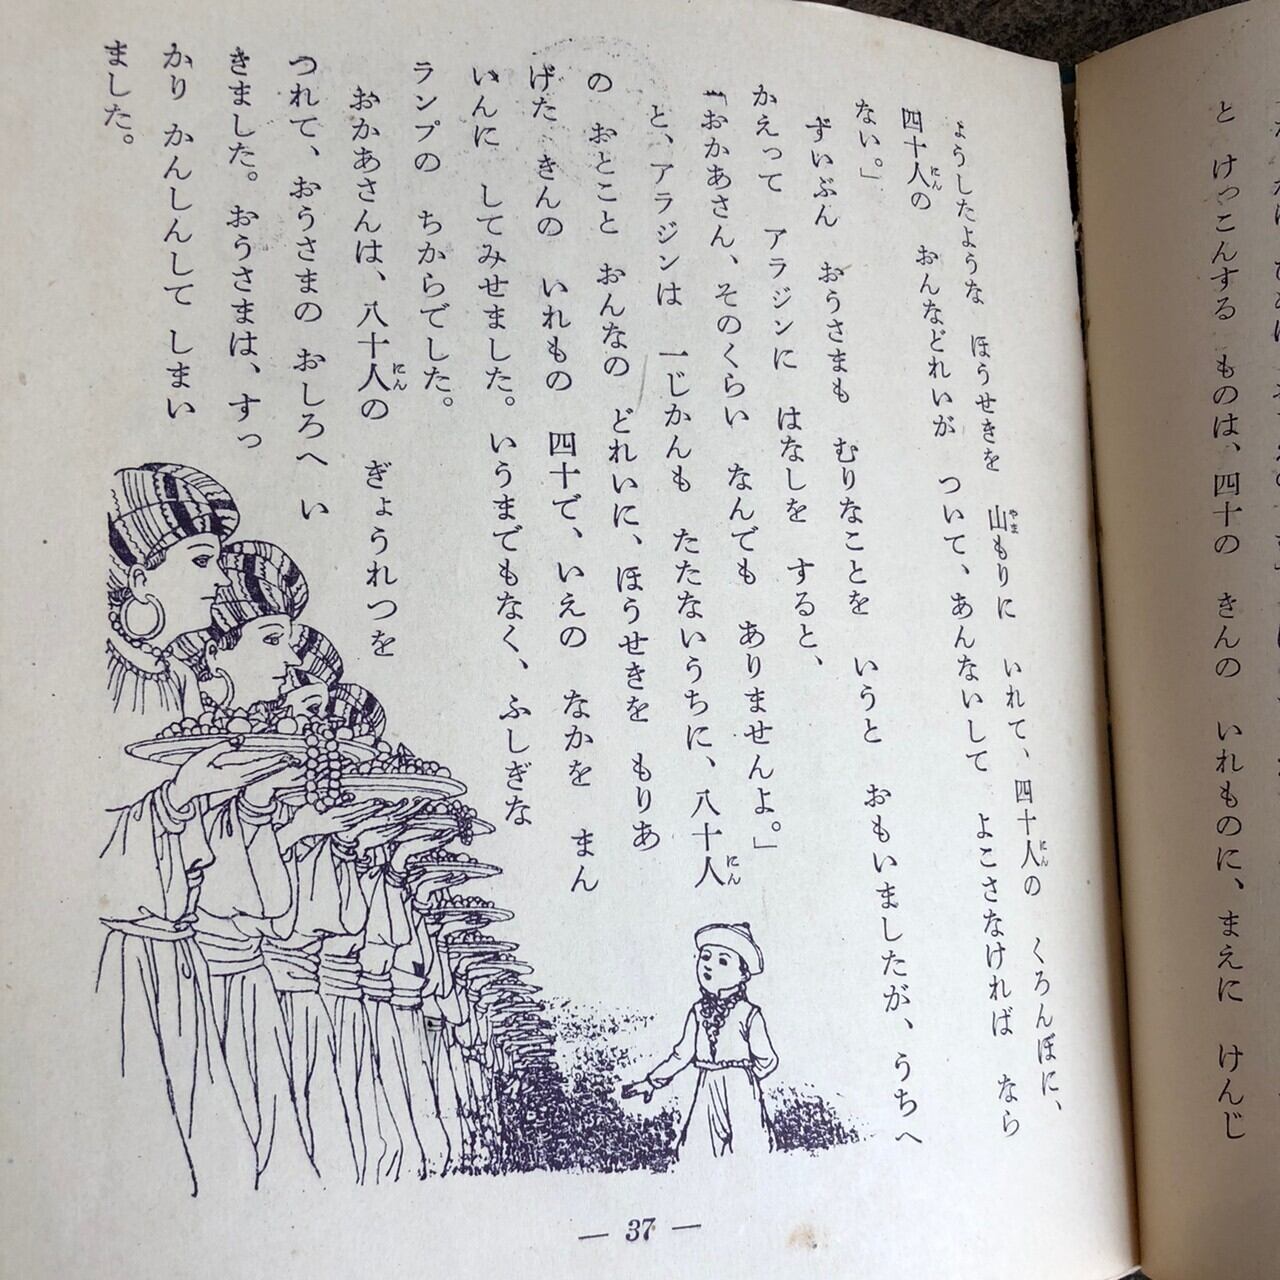 と けっこんする ものは、四十の きんの いれものに、まえに けんじ
ょうしたような ほうせきを 山もりに いれて、四十人の くろんぼに、
四十人の おんなどれいが ついて、あんないして よこさなければ なら
ない。」
ずいぶん おうさまも むりなことを いうと おもいましたが、うちへ
かえって アラジンに はなしを すると、
「おかあさん、そのくらい なんでも ありませんよ。」
と、アラジンは 一じかんも たたないうちに、八十人
の おとこと おんなの どれいに、ほうせきを もりあ
げた きんの いれもの 四十で、いえの なかを まん
いんに してみせました。いうまでもなく、ふしぎな
ランプの ちからでした。
おかあさんは、八十人の ぎょうれつを
つれて、おうさまの おしろへ い
きました。おうさまは、すっ
かり かんしんして しまい
ました。
— 37 —